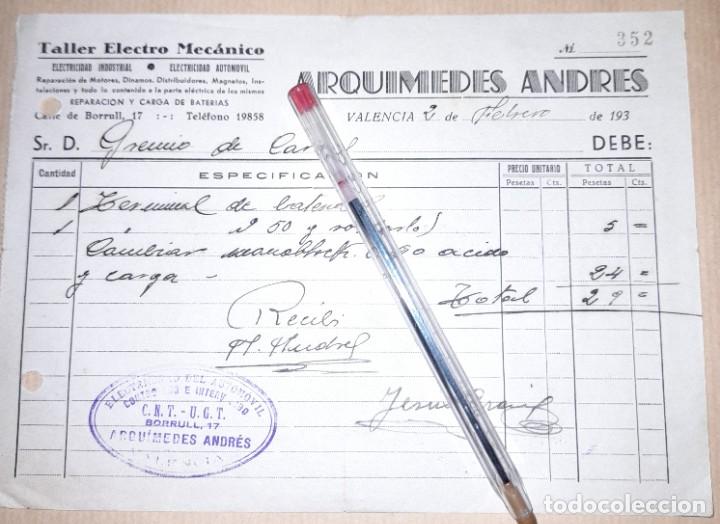 Taller Electro Mecánico
ELECTRICIDAD INDUSTRIAL • ELECTRICIDAD AUTOMOVIL
Reparación de Motores, Dinamos, Distribuidores, Magnetos, Ins-
talaciones y todo lo contenido a la parte eléctrica de los mismos
REPARACION Y CARGA DE BATERIAS
Calle de Borrull, 17 :-: Teléfono 19858
N. 352
ARQUIMEDES ANDRES
VALENCIA 2 de Febrero de 193
Sr. D. Gremio de DEBE:
Cantidad ESPECIFICACION PRECIO UNITARIO TOTAL
Pesetas Cts. Pesetas Cts.
1 Terminal de
1 50 y 5 =
Cambiar acido
y carga - 24 =
Total 29 =
Recibi
ELECTRICIDAD DEL AUTOMOVIL
C.N.T. - U.G.T.
BORRULL, 17
ARQUÍMEDES ANDRÉS
VALENCIA
todocoleccion.net